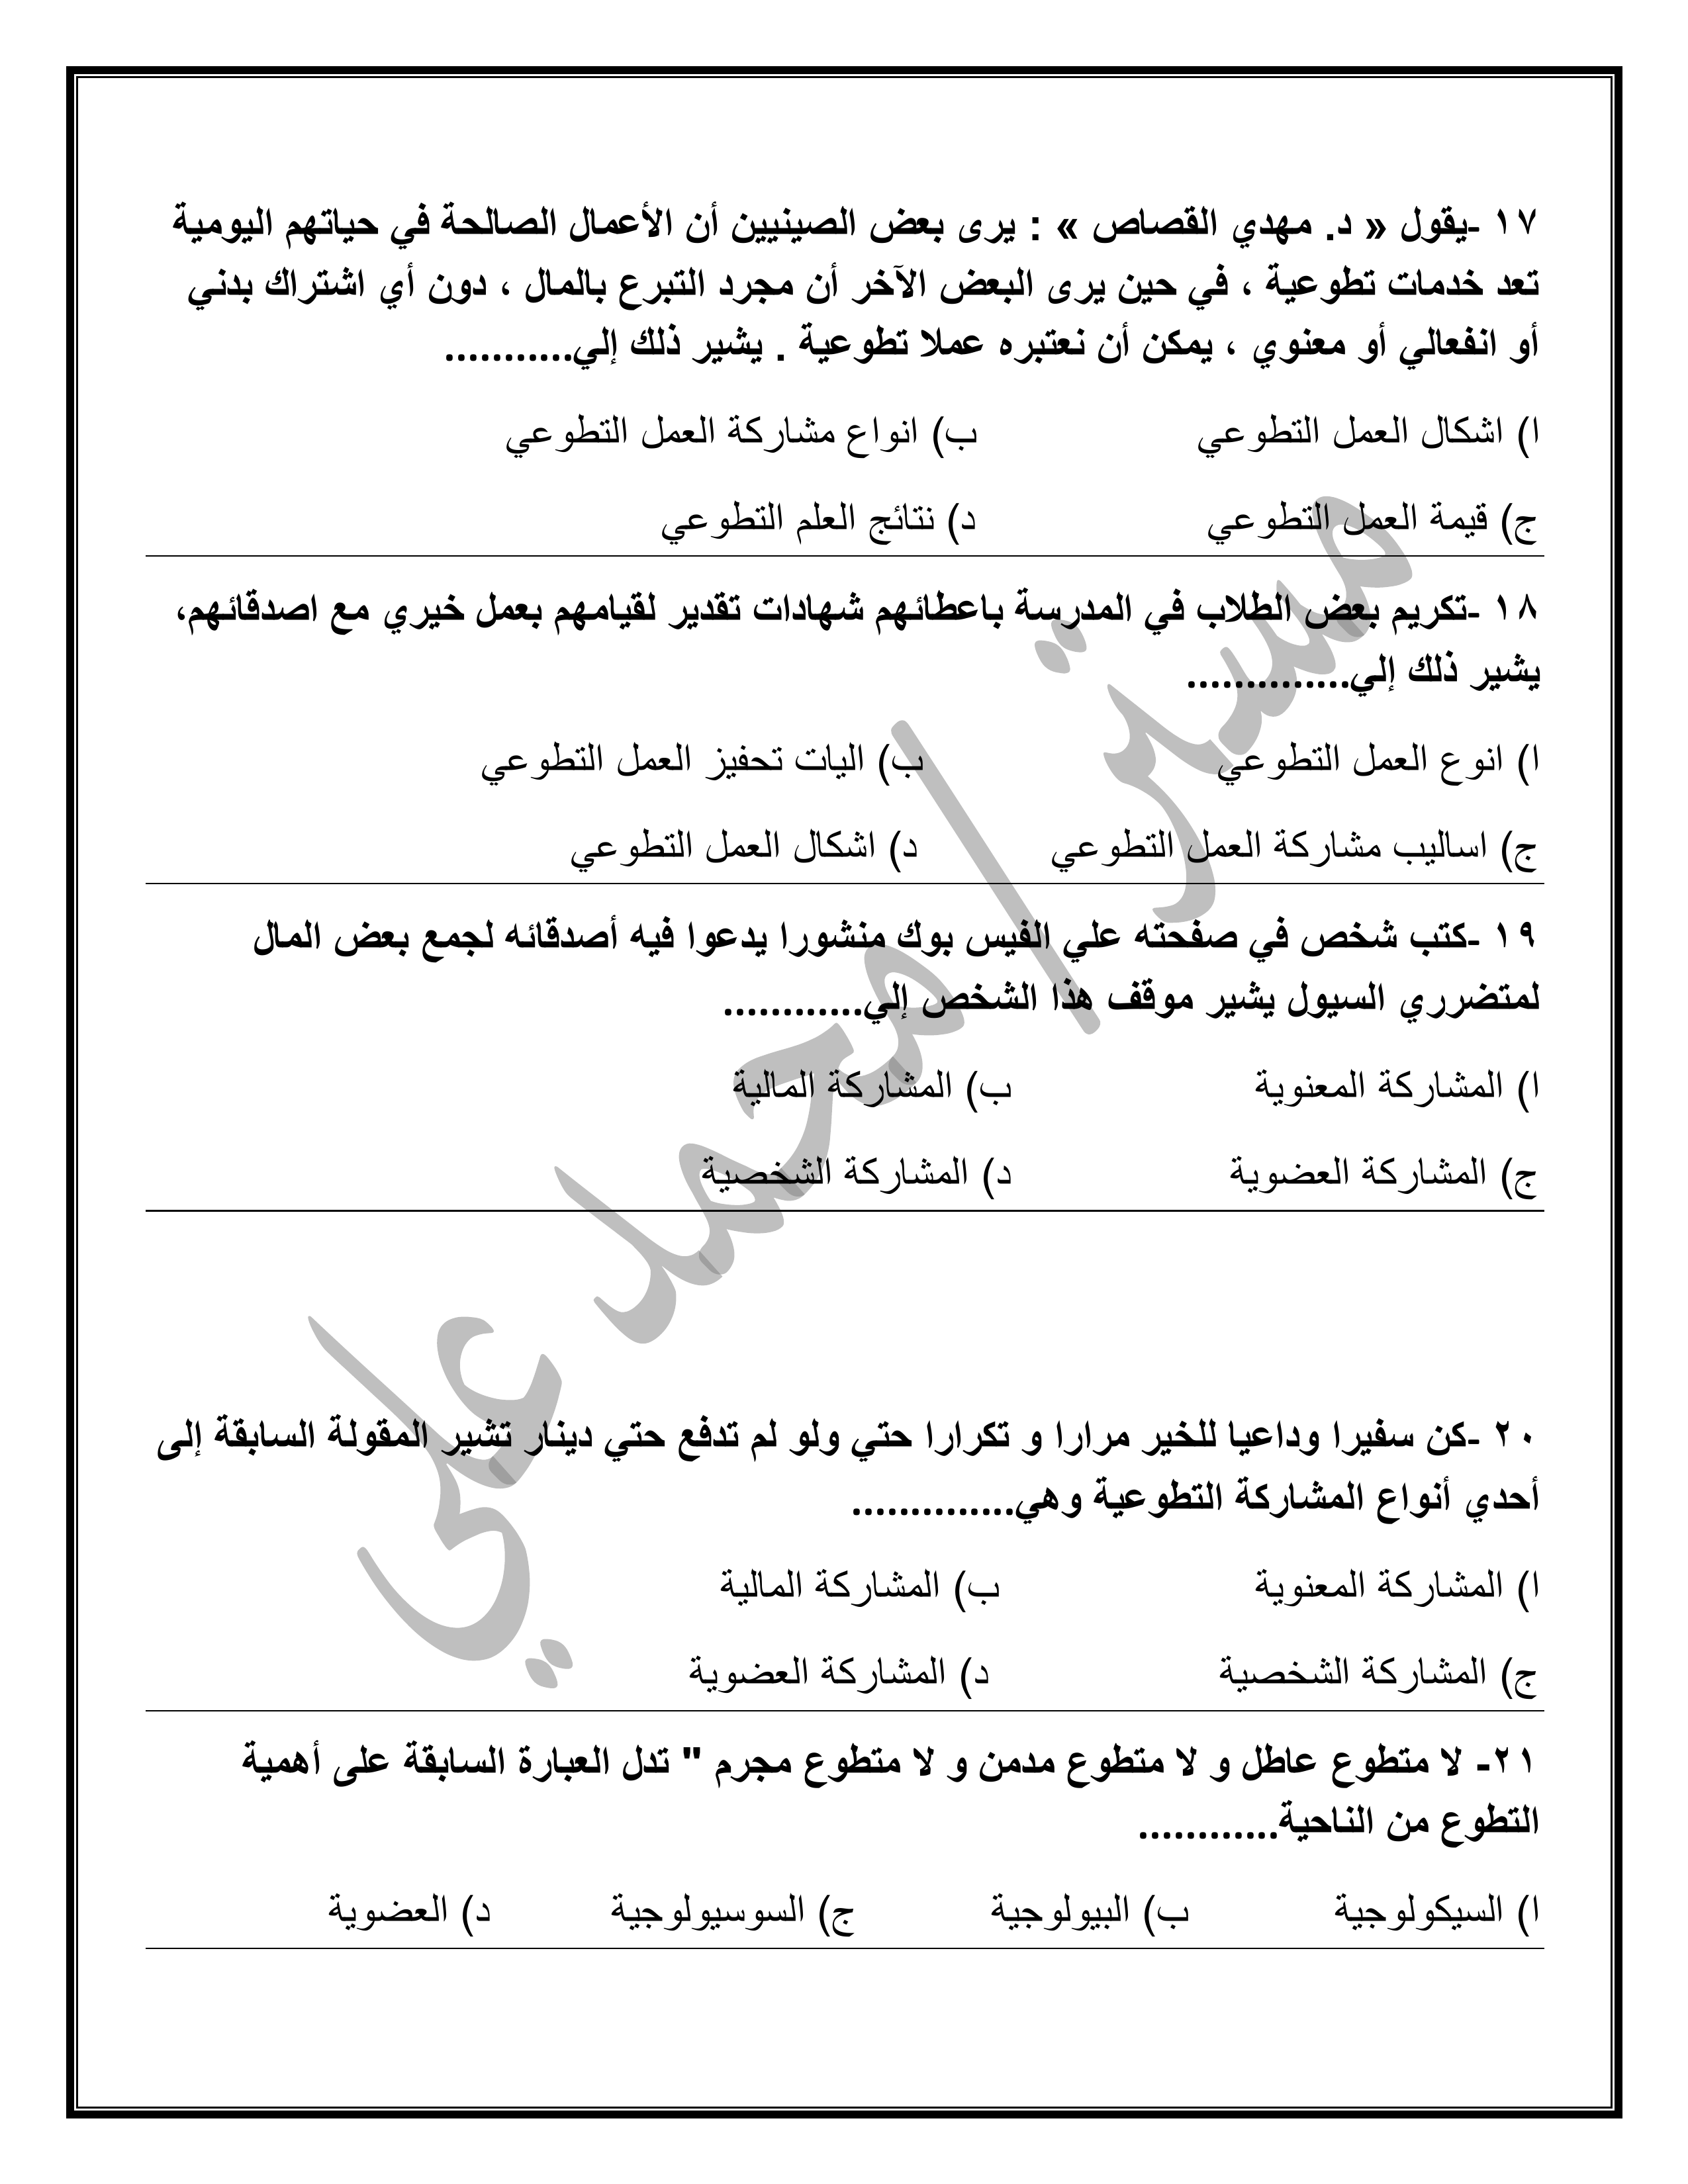 ١٧ -يقول « د. مهدي القصاص » : يرى بعض الصينيين أن الأعمال الصالحة في حياتهم اليومية
تعد خدمات تطوعية ، في حين يرى البعض الآخر أن مجرد التبرع بالمال ، دون أي اشتراك بدني
أو انفعالي أو معنوي ، يمكن أن نعتبره عملا تطوعية . يشير ذلك إلي...........
ا) اشكال العمل التطوعي ب) انواع مشاركة العمل التطوعي
ج) قيمة العمل التطوعي د) نتائج العلم التطوعي
١٨ -تكريم بعض الطلاب في المدرسة باعطائهم شهادات تقدير لقيامهم بعمل خيري مع اصدقائهم،
يشير ذلك إلي..............
ا) انوع العمل التطوعي ب) اليات تحفيز العمل التطوعي
ج) اساليب مشاركة العمل التطوعي د) اشكال العمل التطوعي
١٩ -كتب شخص في صفحته علي الفيس بوك منشورا يدعوا فيه أصدقائه لجمع بعض المال
لمتضرري السيول يشير موقف هذا الشخص إلي............
ا) المشاركة المعنوية ب) المشاركة المالية
ج) المشاركة العضوية د) المشاركة الشخصية
٢٠ -كن سفيرا وداعيا للخير مرارا و تكرارا حتي ولو لم تدفع حتي دينار تشير المقولة السابقة إلى
أحدي أنواع المشاركة التطوعية وهي..............
ا) المشاركة المعنوية ب) المشاركة المالية
ج) المشاركة الشخصية د) المشاركة العضوية
٢١- لا متطوع عاطل و لا متطوع مدمن و لا متطوع مجرم " تدل العبارة السابقة على أهمية
التطوع من الناحية............
ا) السيكولوجية ب) البيولوجية ج) السوسيولوجية د) العضوية
مستر/محمد علي